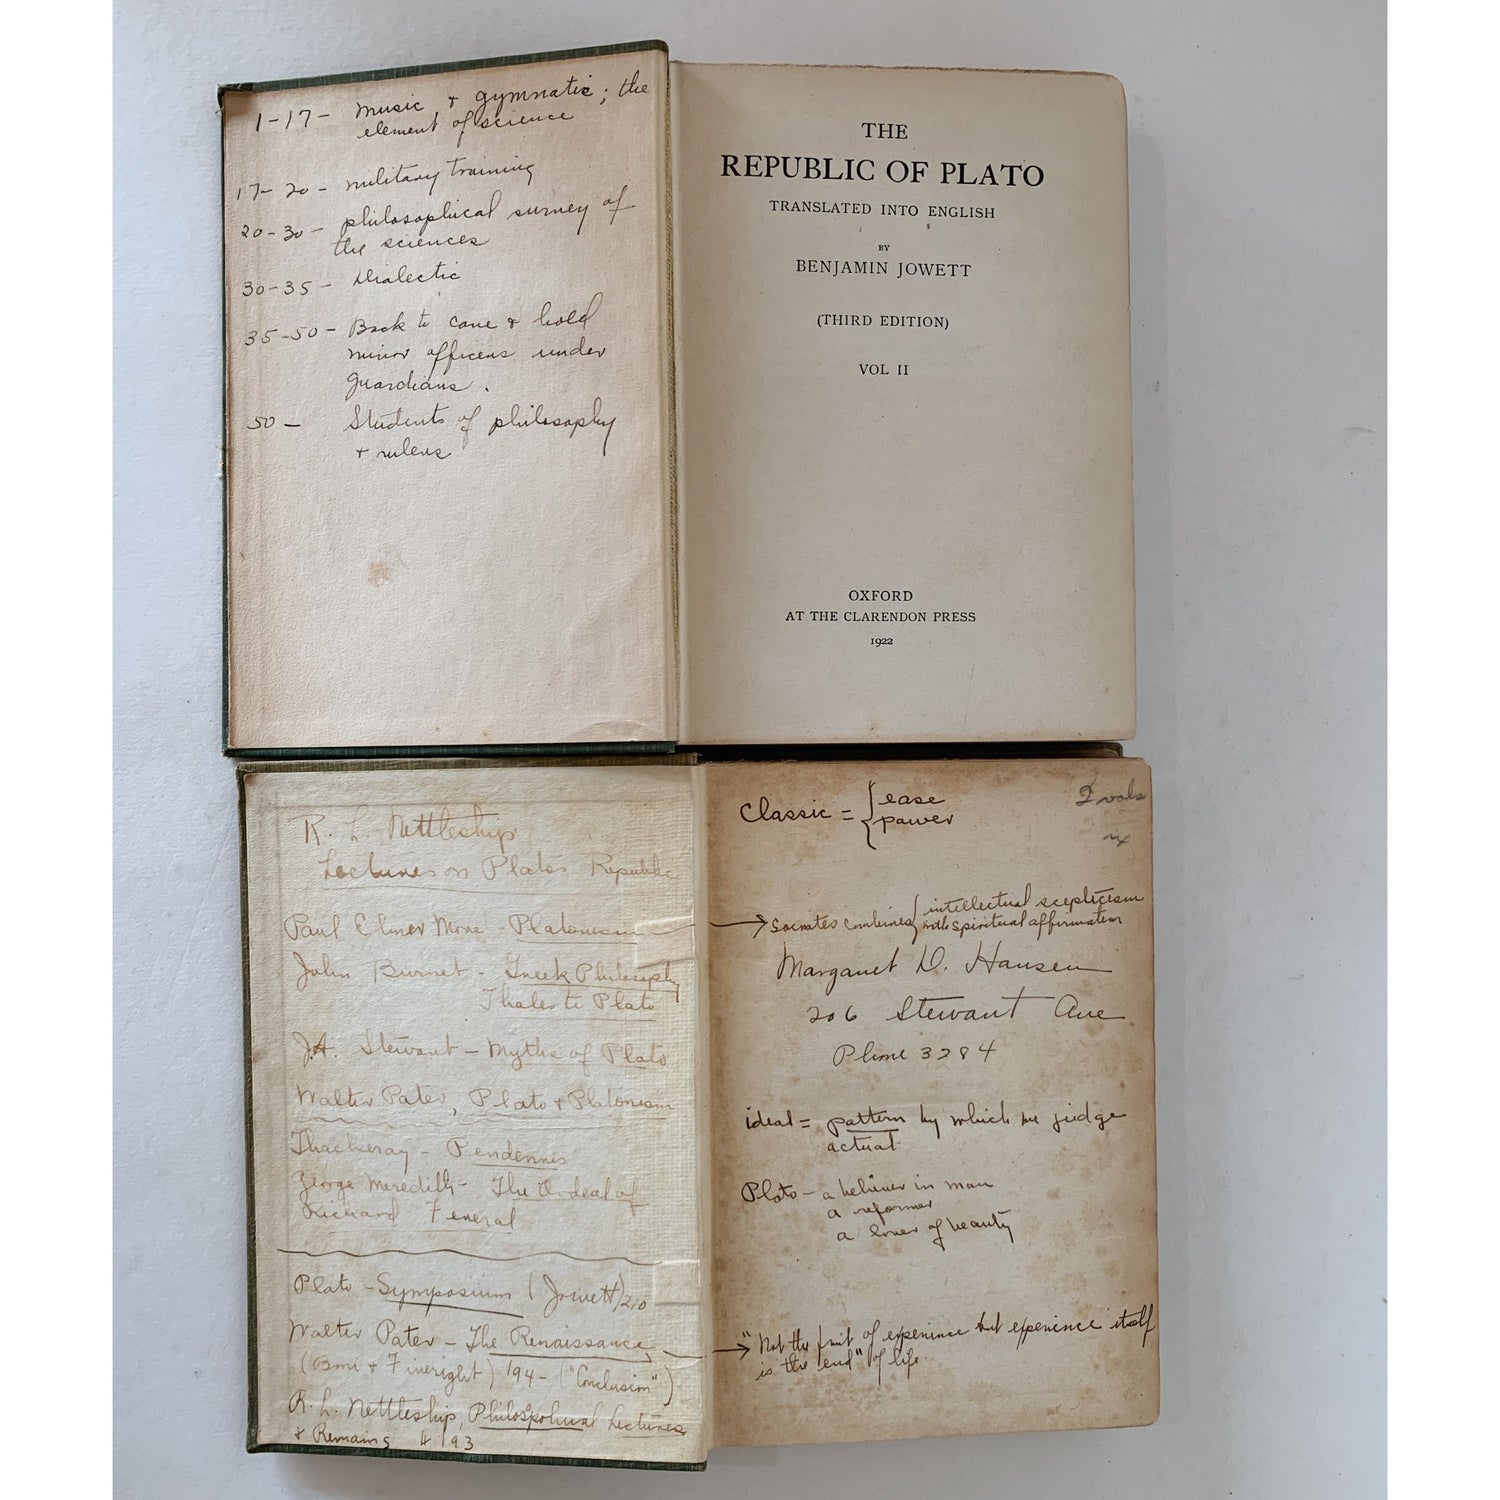 1-17- music + gymnatic; the
element of science
17-20- military training
20-30- philosophical survey of
the sciences
30-35- Dialectic
35-50- Back to cave & hold
minor officers under
guardians.
50- Students of philosophy
+ rulers
THE
REPUBLIC OF PLATO
TRANSLATED INTO ENGLISH
BY
BENJAMIN JOWETT
(THIRD EDITION)
VOL II
OXFORD
AT THE CLARENDON PRESS
1922
R. L. Nettleship
Lectures on Plato's Republic
Paul Elmer More - Platonism
John Burnet - Greek Philosophy
Thales to Plato
J.A. Stewart - Myths of Plato
Walter Pater, Plato & Platonism
Thackeray - Pendennis
George Meredith - The Ordeal of
Richard Feveral
Plato - Symposium (Jowett) 210
Walter Pater - The Renaissance
(Boni + Liveright) 194- ("Conclusion")
R. L. Nettleship, Philosophical Lectures
+ Remains 4193
Classic = { ease
power
2 vols
→ Socrates combines { intellectual scepticism
with spiritual affirmation
Margaret D. Hansen
206 Stewart Ave
Phone 3284
ideal = pattern by which we judge
actual
Plato - a believer in man
a reformer
a lover of beauty
→ "Not the fruit of experience but experience itself
is the end" of life.